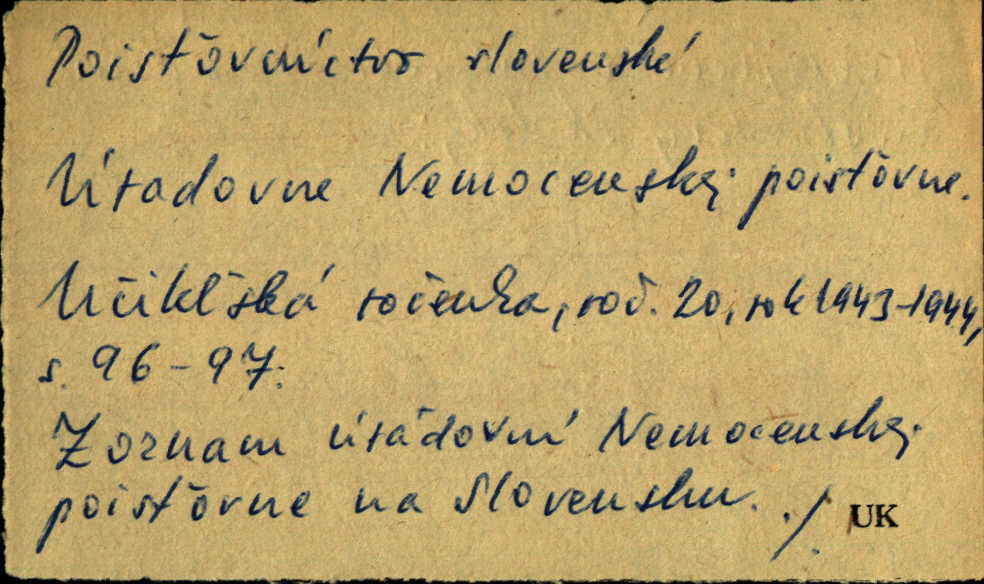 Poisťovníctvo slovenské
Úradovne Nemocenskej poisťovne.
Učiteľská ročenka, roč. 20, rok 1943-1944,
s. 96-97.
Zoznam úradovní Nemocenskej
poisťovne na Slovensku. ./. UK